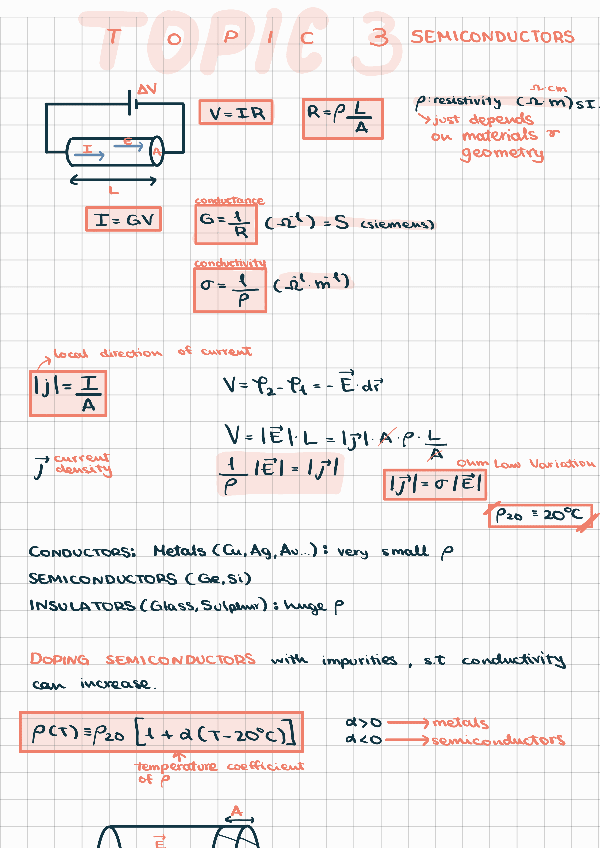 TOPIC 3
TOPIC 3 SEMICONDUCTORS
ΔV
V = IR
R = ρ L/A
Ω·cm
ρ: resistivity (Ω·m) SI.
just depends
on materials &
geometry
I E A
L
I = GV
conductance
G = 1/R (Ω⁻¹) = S (siemens)
conductivity
σ = 1/ρ (Ω⁻¹·m⁻¹)
local direction of current
|j| = I/A
V = φ₂ - φ₁ = - E⃗ · dr⃗
V = |E⃗| · L = |j⃗| · A · ρ · L/A
j⃗ current
density
1/ρ |E⃗| = |j⃗|
Ohm Law Variation
|j⃗| = σ |E⃗|
ρ₂₀ ≡ 20°C
CONDUCTORS: Metals (Cu, Ag, Au...): very small ρ
SEMICONDUCTORS (Ge, Si)
INSULATORS (Glass, Sulphur): huge ρ
DOPING SEMICONDUCTORS with impurities, s.t conductivity
can increase.
ρ(T) ≡ ρ₂₀ [1 + α(T - 20°C)]
α>0 → metals
α<0 → semiconductors
temperature coefficient
of ρ
A
E⃗